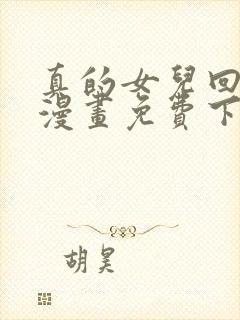 真的女兒回
漫畫免費下
胡昊